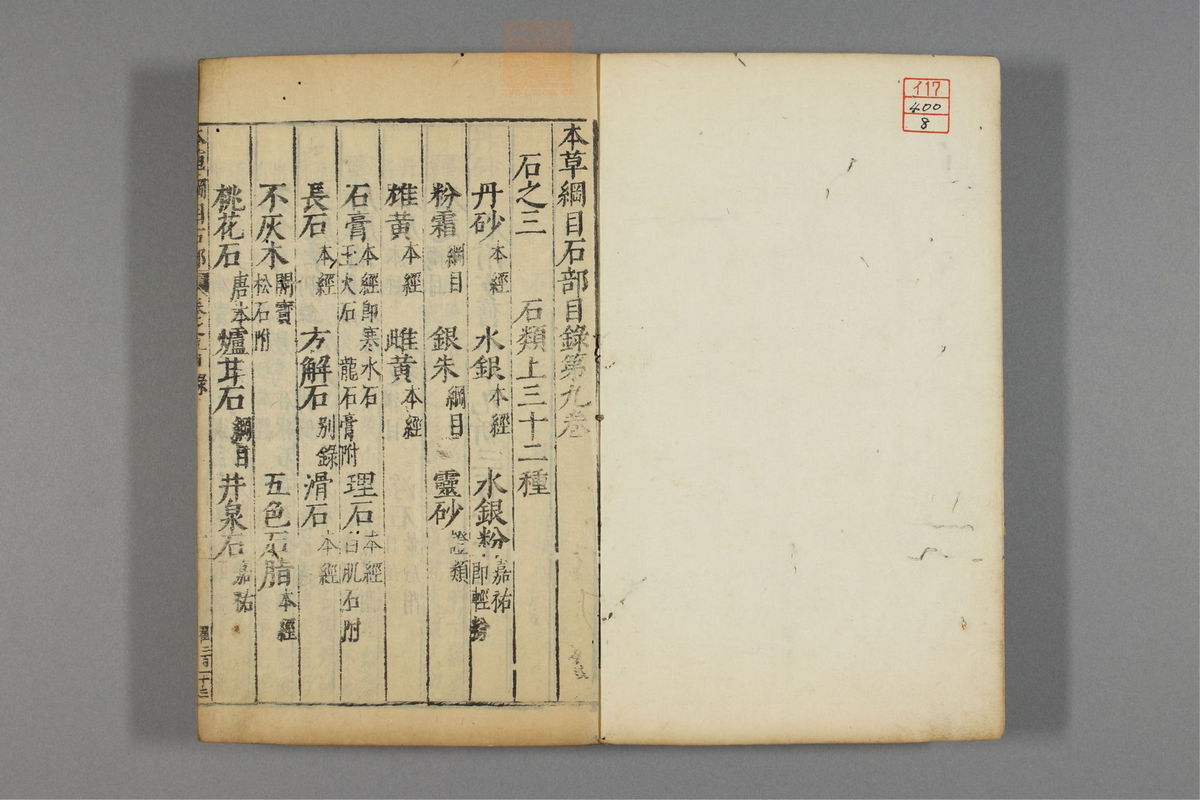 117
400
8
本草綱目石部目錄第九卷
石之三 石類上三十二種
丹砂 本經 水銀 本經 水銀粉 嘉祐 即輕粉
粉霜 綱目 銀朱 綱目 靈砂 證類
雄黃 本經 雌黃 本經
石膏 本經即寒水石 玉火石 龍石膏附 理石 本經 白肌石附
長石 本經 方解石 别錄 滑石 本經
不灰木 開寶 松石附 五色石脂 本經
桃花石 唐本 爐甘石 綱目 井泉石 嘉祐